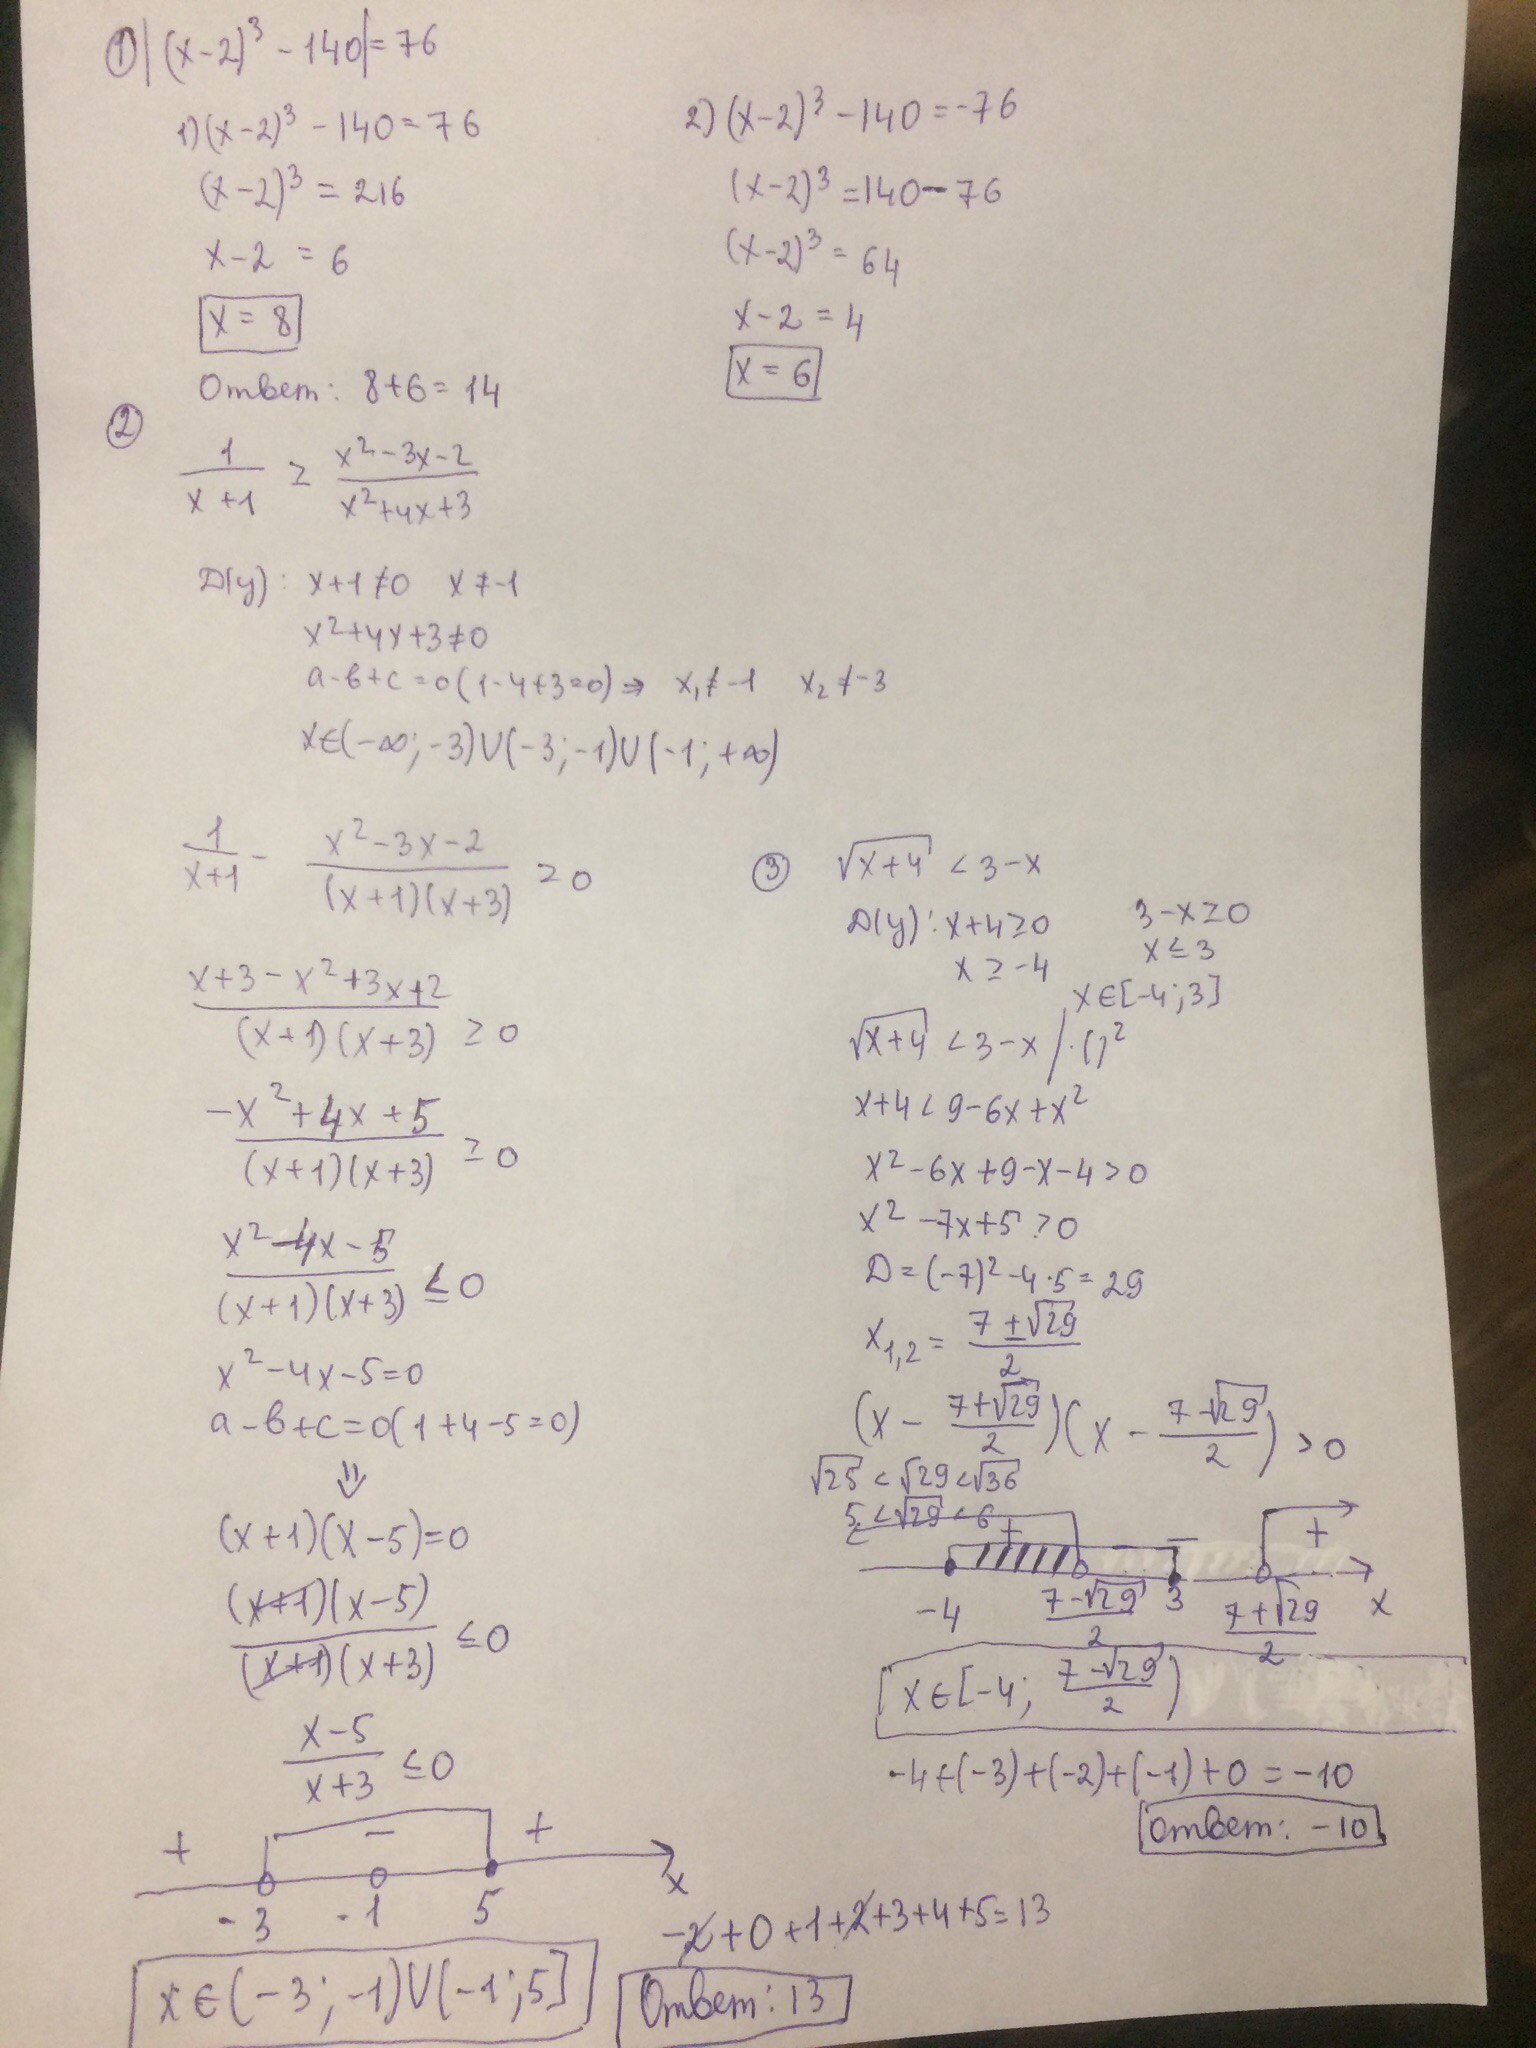 ① |(x-2)³ - 140| = 76
1) (x-2)³ - 140 = 76
(x-2)³ = 216
x-2 = 6
x = 8
Ответ: 8+6 = 14
2) (x-2)³ - 140 = -76
(x-2)³ = 140 - 76
(x-2)³ = 64
x-2 = 4
x = 6
②
1/(x+1) ≥ (x²-3x-2)/(x²+4x+3)
D(y): x+1≠0 x≠-1
x²+4x+3≠0
a-b+c=0 (1-4+3=0) ⇒ x₁≠-1 x₂≠-3
x∈(-∞;-3)∪(-3;-1)∪(-1;+∞)
1/(x+1) - (x²-3x-2)/((x+1)(x+3)) ≥ 0
(x+3-x²+3x+2)/((x+1)(x+3)) ≥ 0
(-x²+4x+5)/((x+1)(x+3)) ≥ 0
(x²-4x-5)/((x+1)(x+3)) ≤ 0
x²-4x-5=0
a-b+c=0 (1+4-5=0)
⇓
(x+1)(x-5)=0
((x+1)(x-5))/((x+1)(x+3)) ≤ 0
(x-5)/(x+3) ≤ 0
+ - +
-3 -1 5 x
x∈(-3;-1)∪(-1;5]
-2+0+1+2+3+4+5=13
Ответ: 13
③ √(x+4) < 3-x
D(y): x+4≥0 3-x≥0
x≥-4 x≤3
x∈[-4;3]
√(x+4) < 3-x / ·()²
x+4 < 9-6x+x²
x²-6x+9-x-4>0
x²-7x+5>0
D=(-7)²-4·5=29
x₁,₂ = (7±√29)/2
(x - (7+√29)/2)(x - (7-√29)/2) > 0
√25 < √29 < √36
5 < √29 < 6
+ - +
-4 (7-√29)/2 3 (7+√29)/2 x
x∈[-4; (7-√29)/2)
-4+(-3)+(-2)+(-1)+0 = -10
Ответ: -10